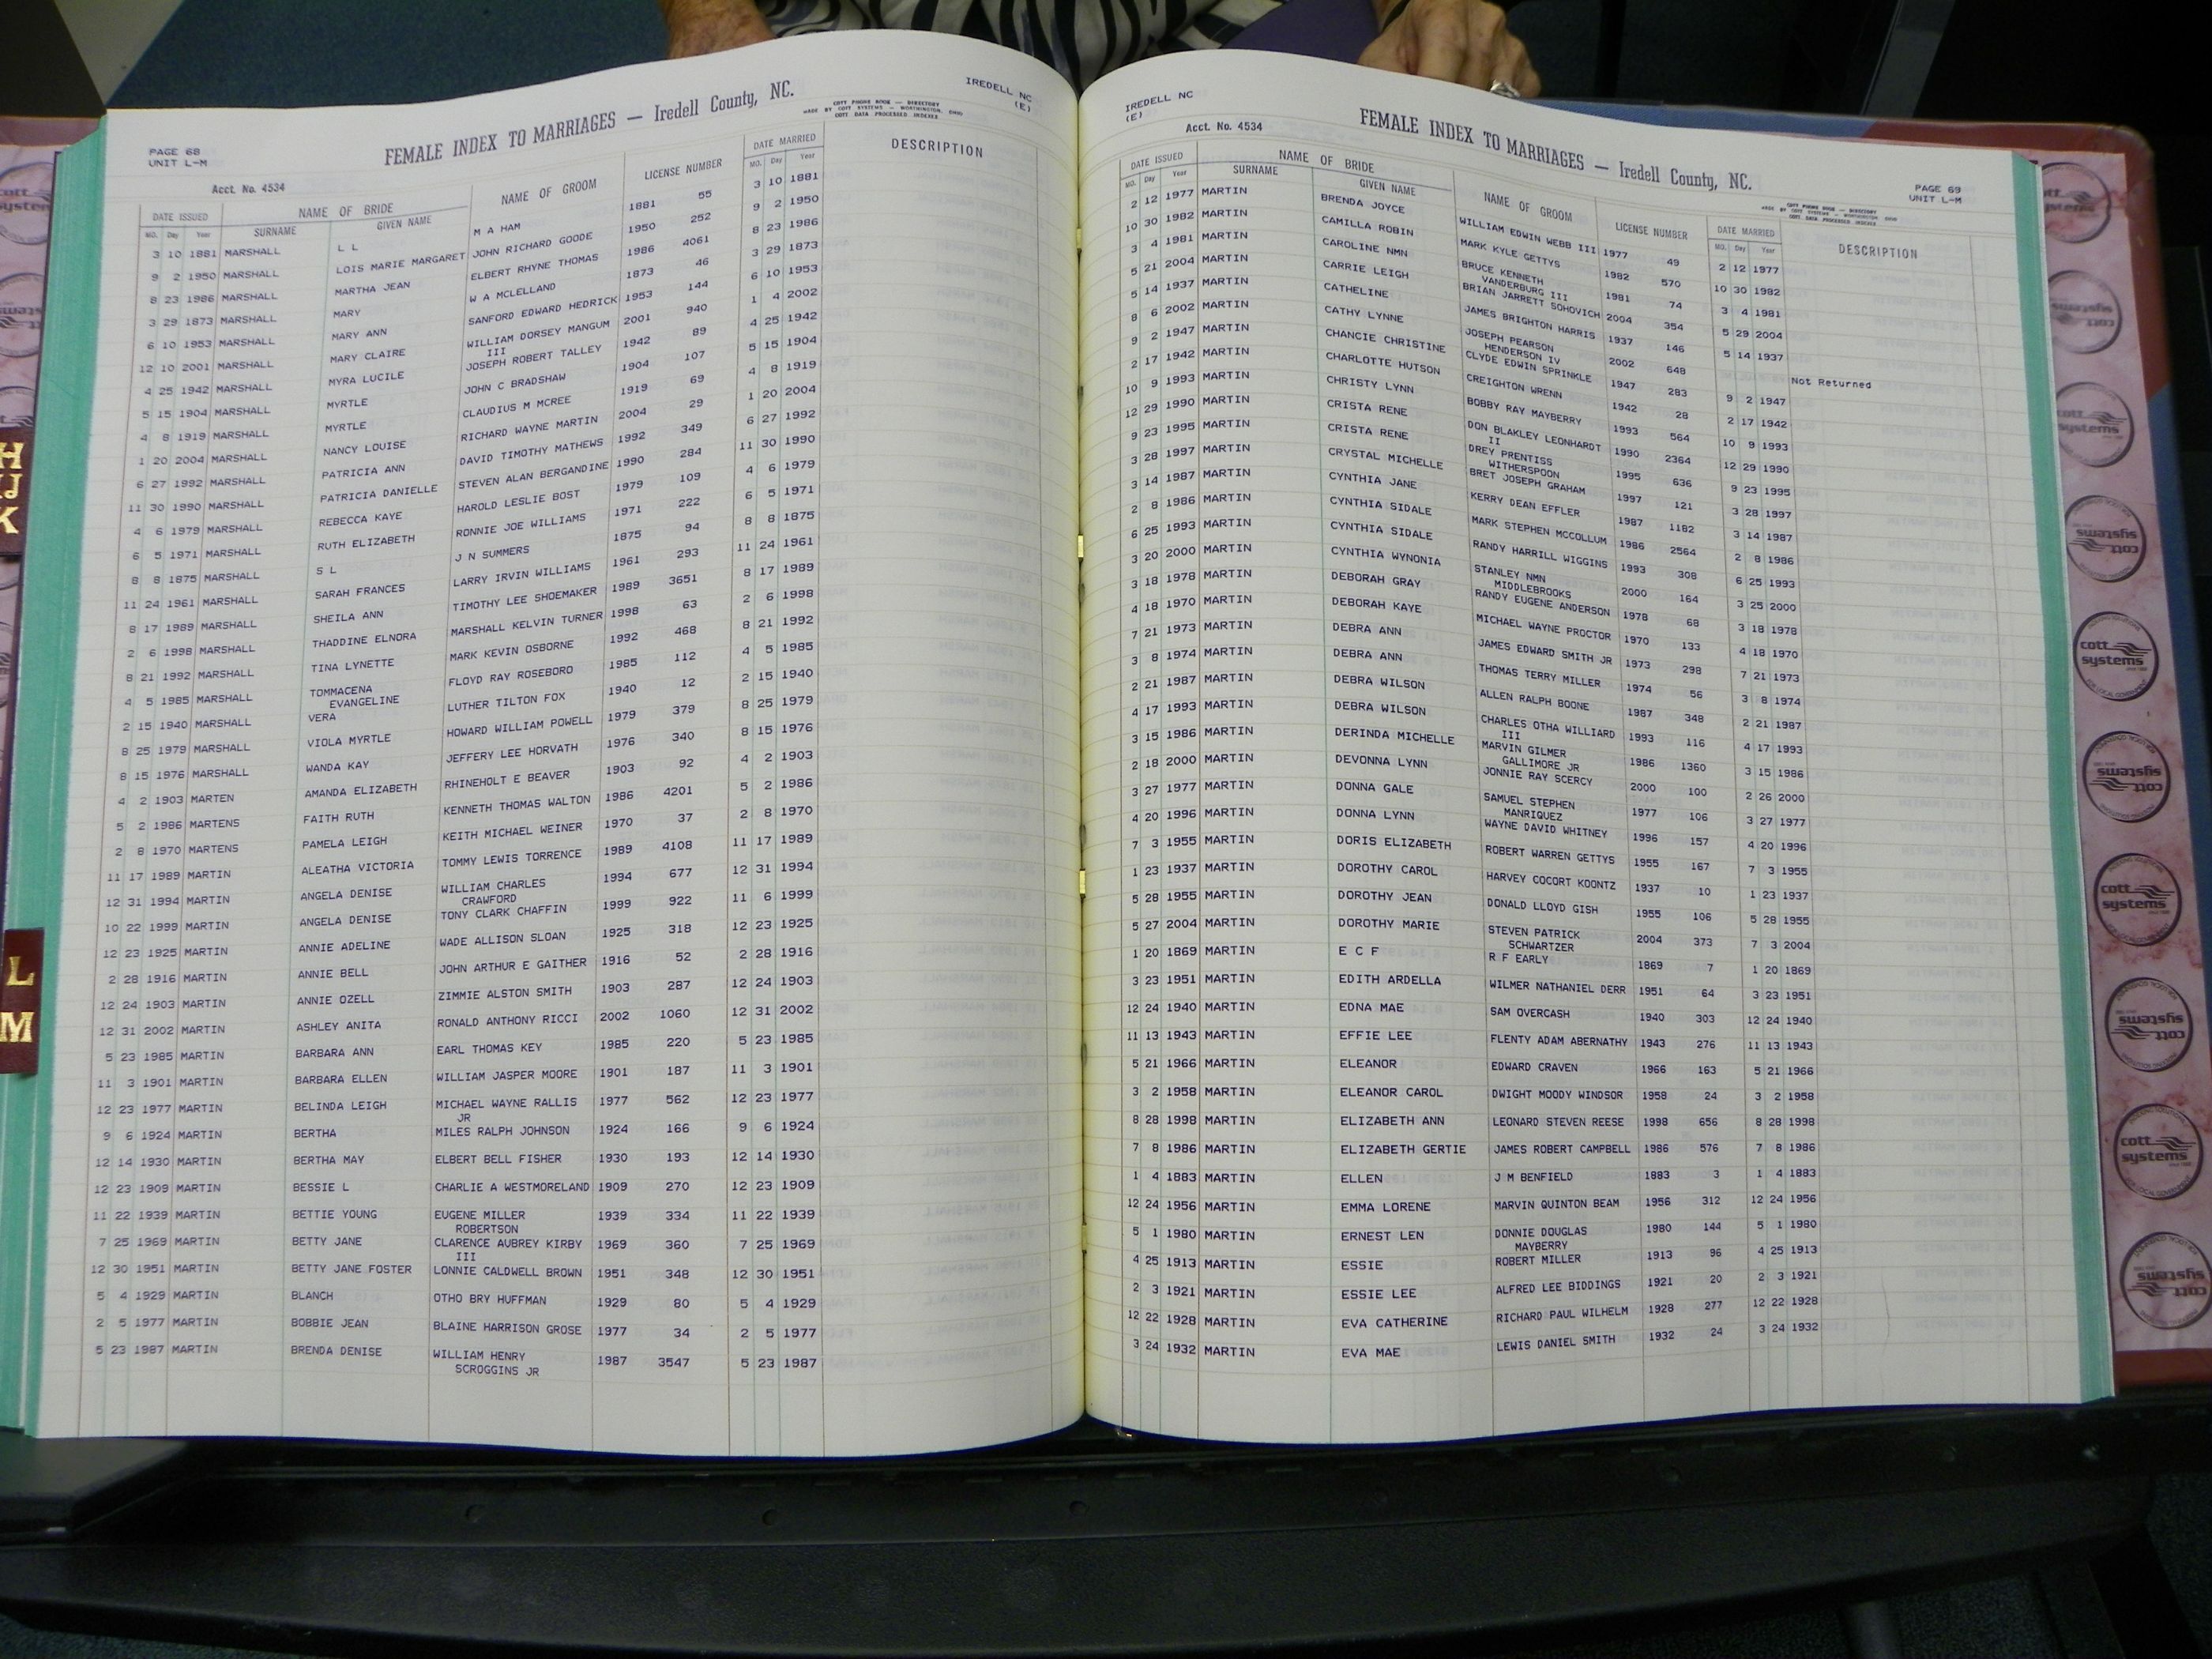 PAGE 68
UNIT L-M
FEMALE INDEX TO MARRIAGES — Iredell County, NC.
COTT PHONE BOOK — DIRECTORY
MADE BY COTT SYSTEMS — WORTHINGTON, OHIO
COTT DATA PROCESSED INDEXES
IREDELL NC
(E)
Acct. No. 4534
DATE ISSUED NAME OF BRIDE NAME OF GROOM LICENSE NUMBER DATE MARRIED DESCRIPTION
MO. Day Year SURNAME GIVEN NAME MO. Day Year
3 10 1881 MARSHALL L L M A HAM 1881 55 3 10 1881
9 2 1950 MARSHALL LOIS MARIE MARGARET JOHN RICHARD GOODE 1950 252 9 2 1950
8 23 1986 MARSHALL MARTHA JEAN ELBERT RHYNE THOMAS 1986 4061 8 23 1986
3 29 1873 MARSHALL MARY W A MCLELLAND 1873 46 3 29 1873
6 10 1953 MARSHALL MARY ANN SANFORD EDWARD HEDRICK 1953 144 6 10 1953
12 10 2001 MARSHALL MARY CLAIRE WILLIAM DORSEY MANGUM 2001 940 1 4 2002
III
4 25 1942 MARSHALL MYRA LUCILE JOSEPH ROBERT TALLEY 1942 89 4 25 1942
5 15 1904 MARSHALL MYRTLE JOHN C BRADSHAW 1904 107 5 15 1904
4 8 1919 MARSHALL MYRTLE CLAUDIUS M MCREE 1919 69 4 8 1919
1 20 2004 MARSHALL NANCY LOUISE RICHARD WAYNE MARTIN 2004 29 1 20 2004
6 27 1992 MARSHALL PATRICIA ANN DAVID TIMOTHY MATHEWS 1992 349 6 27 1992
11 30 1990 MARSHALL PATRICIA DANIELLE STEVEN ALAN BERGANDINE 1990 284 11 30 1990
4 6 1979 MARSHALL REBECCA KAYE HAROLD LESLIE BOST 1979 109 4 6 1979
6 5 1971 MARSHALL RUTH ELIZABETH RONNIE JOE WILLIAMS 1971 222 6 5 1971
8 8 1875 MARSHALL S L J N SUMMERS 1875 94 8 8 1875
11 24 1961 MARSHALL SARAH FRANCES LARRY IRVIN WILLIAMS 1961 293 11 24 1961
8 17 1989 MARSHALL SHEILA ANN TIMOTHY LEE SHOEMAKER 1989 3651 8 17 1989
2 6 1998 MARSHALL THADDINE ELNORA MARSHALL KELVIN TURNER 1998 63 2 6 1998
8 21 1992 MARSHALL TINA LYNETTE MARK KEVIN OSBORNE 1992 468 8 21 1992
4 5 1985 MARSHALL TOMMACENA FLOYD RAY ROSEBORO 1985 112 4 5 1985
EVANGELINE
2 15 1940 MARSHALL VERA LUTHER TILTON FOX 1940 12 2 15 1940
8 25 1979 MARSHALL VIOLA MYRTLE HOWARD WILLIAM POWELL 1979 379 8 25 1979
8 15 1976 MARSHALL WANDA KAY JEFFERY LEE HORVATH 1976 340 8 15 1976
4 2 1903 MARTEN AMANDA ELIZABETH RHINEHOLT E BEAVER 1903 92 4 2 1903
5 2 1986 MARTENS FAITH RUTH KENNETH THOMAS WALTON 1986 4201 5 2 1986
2 8 1970 MARTENS PAMELA LEIGH KEITH MICHAEL WEINER 1970 37 2 8 1970
11 17 1989 MARTIN ALEATHA VICTORIA TOMMY LEWIS TORRENCE 1989 4108 11 17 1989
12 31 1994 MARTIN ANGELA DENISE WILLIAM CHARLES 1994 677 12 31 1994
CRAWFORD
10 22 1999 MARTIN ANGELA DENISE TONY CLARK CHAFFIN 1999 922 11 6 1999
12 23 1925 MARTIN ANNIE ADELINE WADE ALLISON SLOAN 1925 318 12 23 1925
2 28 1916 MARTIN ANNIE BELL JOHN ARTHUR E GAITHER 1916 52 2 28 1916
12 24 1903 MARTIN ANNIE OZELL ZIMMIE ALSTON SMITH 1903 287 12 24 1903
12 31 2002 MARTIN ASHLEY ANITA RONALD ANTHONY RICCI 2002 1060 12 31 2002
5 23 1985 MARTIN BARBARA ANN EARL THOMAS KEY 1985 220 5 23 1985
11 3 1901 MARTIN BARBARA ELLEN WILLIAM JASPER MOORE 1901 187 11 3 1901
12 23 1977 MARTIN BELINDA LEIGH MICHAEL WAYNE RALLIS 1977 562 12 23 1977
JR
9 6 1924 MARTIN BERTHA MILES RALPH JOHNSON 1924 166 9 6 1924
12 14 1930 MARTIN BERTHA MAY ELBERT BELL FISHER 1930 193 12 14 1930
12 23 1909 MARTIN BESSIE L CHARLIE A WESTMORELAND 1909 270 12 23 1909
11 22 1939 MARTIN BETTIE YOUNG EUGENE MILLER 1939 334 11 22 1939
ROBERTSON
7 25 1969 MARTIN BETTY JANE CLARENCE AUBREY KIRBY 1969 360 7 25 1969
III
12 30 1951 MARTIN BETTY JANE FOSTER LONNIE CALDWELL BROWN 1951 348 12 30 1951
5 4 1929 MARTIN BLANCH OTHO BRY HUFFMAN 1929 80 5 4 1929
2 5 1977 MARTIN BOBBIE JEAN BLAINE HARRISON GROSE 1977 34 2 5 1977
5 23 1987 MARTIN BRENDA DENISE WILLIAM HENRY 1987 3547 5 23 1987
SCROGGINS JR
IREDELL NC
(E)
Acct. No. 4534
FEMALE INDEX TO MARRIAGES — Iredell County, NC.
COTT PHONE BOOK — DIRECTORY
MADE BY COTT SYSTEMS — WORTHINGTON, OHIO
COTT DATA PROCESSED INDEXES
PAGE 69
UNIT L-M
DATE ISSUED NAME OF BRIDE NAME OF GROOM LICENSE NUMBER DATE MARRIED DESCRIPTION
MO. Day Year SURNAME GIVEN NAME MO. Day Year
2 12 1977 MARTIN BRENDA JOYCE WILLIAM EDWIN WEBB III 1977 49 2 12 1977
10 30 1982 MARTIN CAMILLA ROBIN MARK KYLE GETTYS 1982 570 10 30 1982
3 4 1981 MARTIN CAROLINE NMN BRUCE KENNETH 1981 74 3 4 1981
VANDERBURG III
5 21 2004 MARTIN CARRIE LEIGH BRIAN JARRETT SOHOVICH 2004 354 5 29 2004
5 14 1937 MARTIN CATHELINE JAMES BRIGHTON HARRIS 1937 146 5 14 1937
8 6 2002 MARTIN CATHY LYNNE JOSEPH PEARSON 2002 648 Not Returned
HENDERSON IV
9 2 1947 MARTIN CHANCIE CHRISTINE CLYDE EDWIN SPRINKLE 1947 283 9 2 1947
2 17 1942 MARTIN CHARLOTTE HUTSON CREIGHTON WRENN 1942 28 2 17 1942
10 9 1993 MARTIN CHRISTY LYNN BOBBY RAY MAYBERRY 1993 564 10 9 1993
12 29 1990 MARTIN CRISTA RENE DON BLAKLEY LEONHARDT 1990 2364 12 29 1990
II
9 23 1995 MARTIN CRISTA RENE DREY PRENTISS 1995 636 9 23 1995
WITHERSPOON
3 28 1997 MARTIN CRYSTAL MICHELLE BRET JOSEPH GRAHAM 1997 121 3 28 1997
3 14 1987 MARTIN CYNTHIA JANE KERRY DEAN EFFLER 1987 1182 3 14 1987
2 8 1986 MARTIN CYNTHIA SIDALE MARK STEPHEN MCCOLLUM 1986 2564 2 8 1986
6 25 1993 MARTIN CYNTHIA SIDALE RANDY HARRILL WIGGINS 1993 308 6 25 1993
3 20 2000 MARTIN CYNTHIA WYNONIA STANLEY NMN 2000 164 3 25 2000
MIDDLEBROOKS
3 18 1978 MARTIN DEBORAH GRAY RANDY EUGENE ANDERSON 1978 68 3 18 1978
4 18 1970 MARTIN DEBORAH KAYE MICHAEL WAYNE PROCTOR 1970 133 4 18 1970
7 21 1973 MARTIN DEBRA ANN JAMES EDWARD SMITH JR 1973 298 7 21 1973
3 8 1974 MARTIN DEBRA ANN THOMAS TERRY MILLER 1974 56 3 8 1974
2 21 1987 MARTIN DEBRA WILSON ALLEN RALPH BOONE 1987 348 2 21 1987
4 17 1993 MARTIN DEBRA WILSON CHARLES OTHA WILLIARD 1993 116 4 17 1993
III
3 15 1986 MARTIN DERINDA MICHELLE MARVIN GILMER 1986 1360 3 15 1986
GALLIMORE JR
2 18 2000 MARTIN DEVONNA LYNN JONNIE RAY SCERCY 2000 100 2 26 2000
3 27 1977 MARTIN DONNA GALE SAMUEL STEPHEN 1977 106 3 27 1977
MANRIQUEZ
4 20 1996 MARTIN DONNA LYNN WAYNE DAVID WHITNEY 1996 157 4 20 1996
7 3 1955 MARTIN DORIS ELIZABETH ROBERT WARREN GETTYS 1955 167 7 3 1955
1 23 1937 MARTIN DOROTHY CAROL HARVEY COCORT KOONTZ 1937 10 1 23 1937
5 28 1955 MARTIN DOROTHY JEAN DONALD LLOYD GISH 1955 106 5 28 1955
5 27 2004 MARTIN DOROTHY MARIE STEVEN PATRICK 2004 373 7 3 2004
SCHWARTZER
1 20 1869 MARTIN E C F R F EARLY 1869 7 1 20 1869
3 23 1951 MARTIN EDITH ARDELLA WILMER NATHANIEL DERR 1951 64 3 23 1951
12 24 1940 MARTIN EDNA MAE SAM OVERCASH 1940 303 12 24 1940
11 13 1943 MARTIN EFFIE LEE FLENTY ADAM ABERNATHY 1943 276 11 13 1943
5 21 1966 MARTIN ELEANOR EDWARD CRAVEN 1966 163 5 21 1966
3 2 1958 MARTIN ELEANOR CAROL DWIGHT MOODY WINDSOR 1958 24 3 2 1958
8 28 1998 MARTIN ELIZABETH ANN LEONARD STEVEN REESE 1998 656 8 28 1998
7 8 1986 MARTIN ELIZABETH GERTIE JAMES ROBERT CAMPBELL 1986 576 7 8 1986
1 4 1883 MARTIN ELLEN J M BENFIELD 1883 3 1 4 1883
12 24 1956 MARTIN EMMA LORENE MARVIN QUINTON BEAM 1956 312 12 24 1956
5 1 1980 MARTIN ERNEST LEN DONNIE DOUGLAS 1980 144 5 1 1980
MAYBERRY
4 25 1913 MARTIN ESSIE ROBERT MILLER 1913 96 4 25 1913
2 3 1921 MARTIN ESSIE LEE ALFRED LEE BIDDINGS 1921 20 2 3 1921
12 22 1928 MARTIN EVA CATHERINE RICHARD PAUL WILHELM 1928 277 12 22 1928
3 24 1932 MARTIN EVA MAE LEWIS DANIEL SMITH 1932 24 3 24 1932
H
IJ
K
L
M
cott
systems
cott
systems
cott
systems